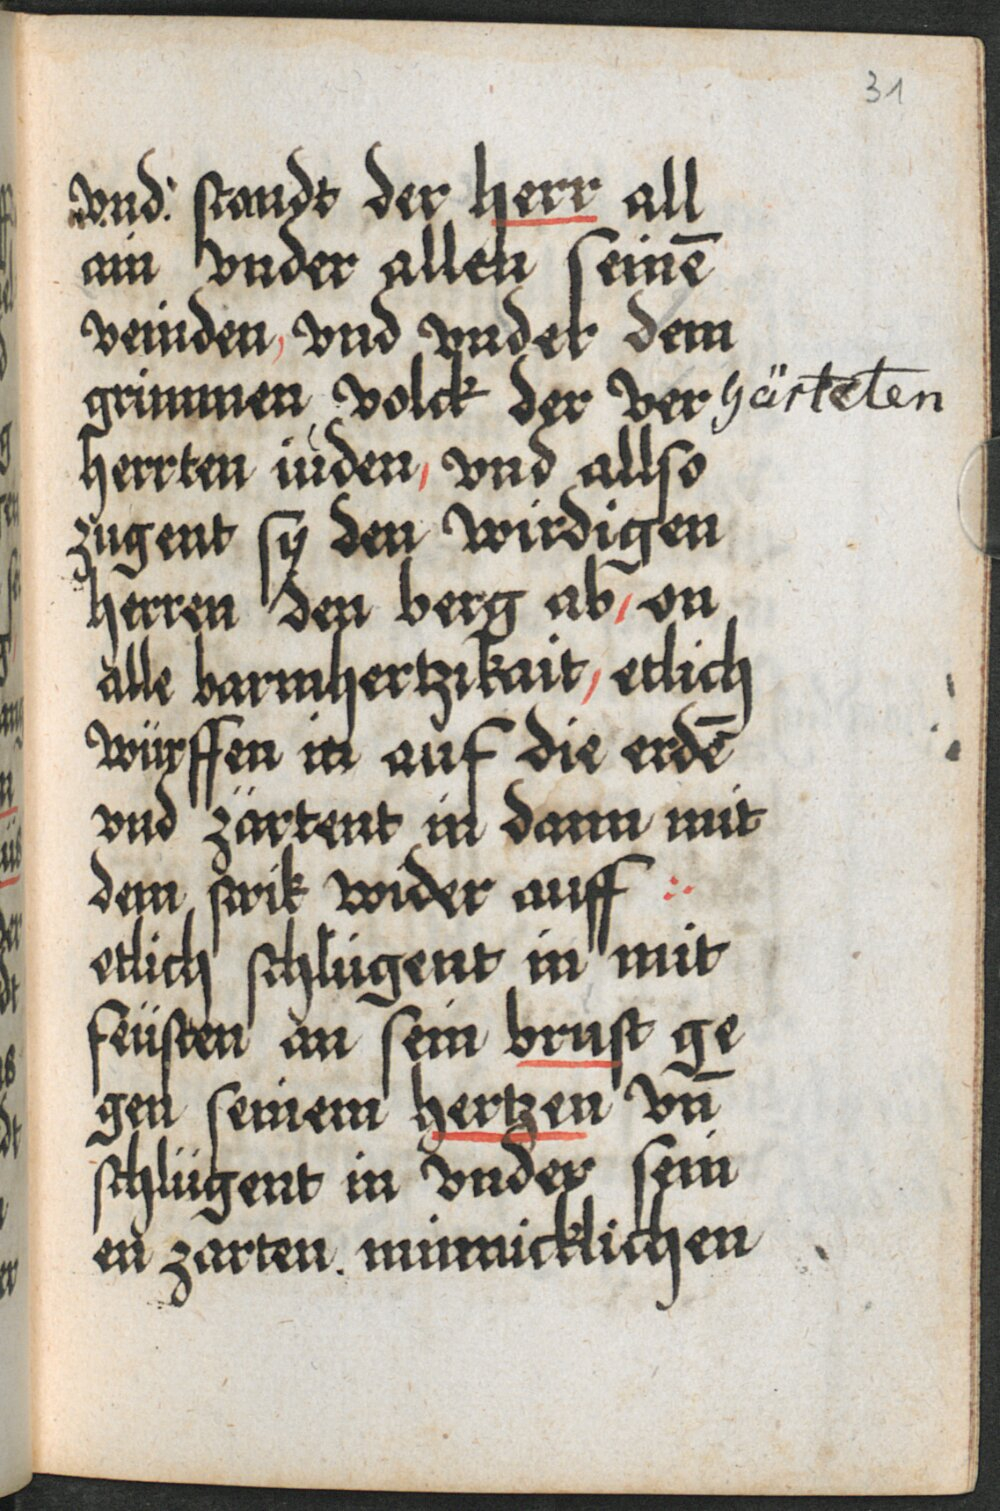 31
vnd: standt der herr all
ain vnder allen seinē
veinden, vnd vnder dem
grimmen volck der ver härteten
herrten iuden, vnd allso
zugent sÿ den wirdigen
herren den berg ab, on
alle barmhertzikait, etlich
würffen in auf die erdē
vnd zärtent in dann mit
dem strik wider auff :.
etlich schlügent in mit
feüsten an sein brust ge
gen seinem hertzen vn̄
schlügent in vnder sein
en zarten. minnicklichen